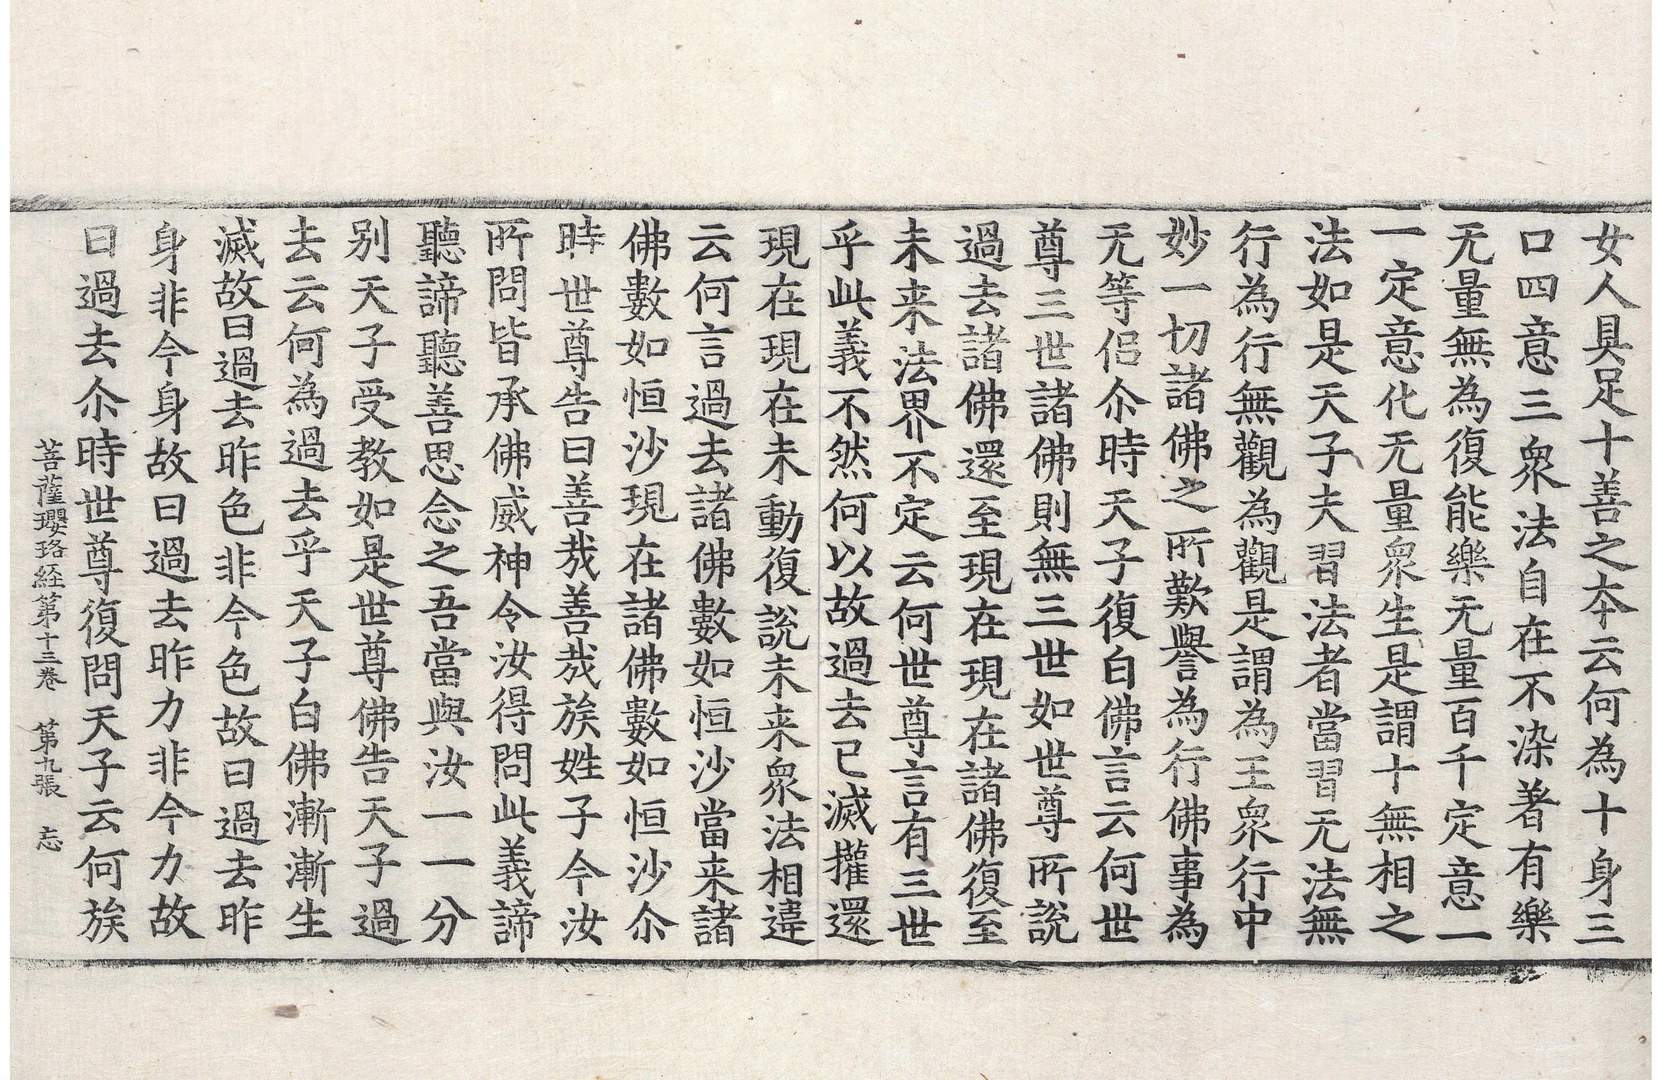 女人具足十善之本云何為十身三
口四意三衆法自在不染著有樂
无量無為復能樂无量百千定意一
一定意化无量衆生是謂十無相之
法如是天子夫習法者當習无法無
行為行無觀為觀是謂為王衆行中
妙一切諸佛之所歎譽為行佛事為
无等侣尒時天子復白佛言云何世
尊三世諸佛則無三世如世尊所說
過去諸佛還至現在現在諸佛復至
未来法界不定云何世尊言有三世
乎此義不然何以故過去已滅擢還
現在現在未動復說未来衆法相違
云何言過去諸佛數如恒沙當来諸
佛數如恒沙現在諸佛數如恒沙尒
時世尊告曰善哉善哉族姓子今汝
所問皆承佛威神令汝得問此義諦
聽諦聽善思念之吾當與汝一一分
别天子受教如是世尊佛告天子過
去云何為過去乎天子白佛漸漸生
滅故曰過去昨色非今色故曰過去昨
身非今身故曰過去昨力非今力故
曰過去尒時世尊復問天子云何族
菩薩瓔珞経第十三卷 第九張 忘